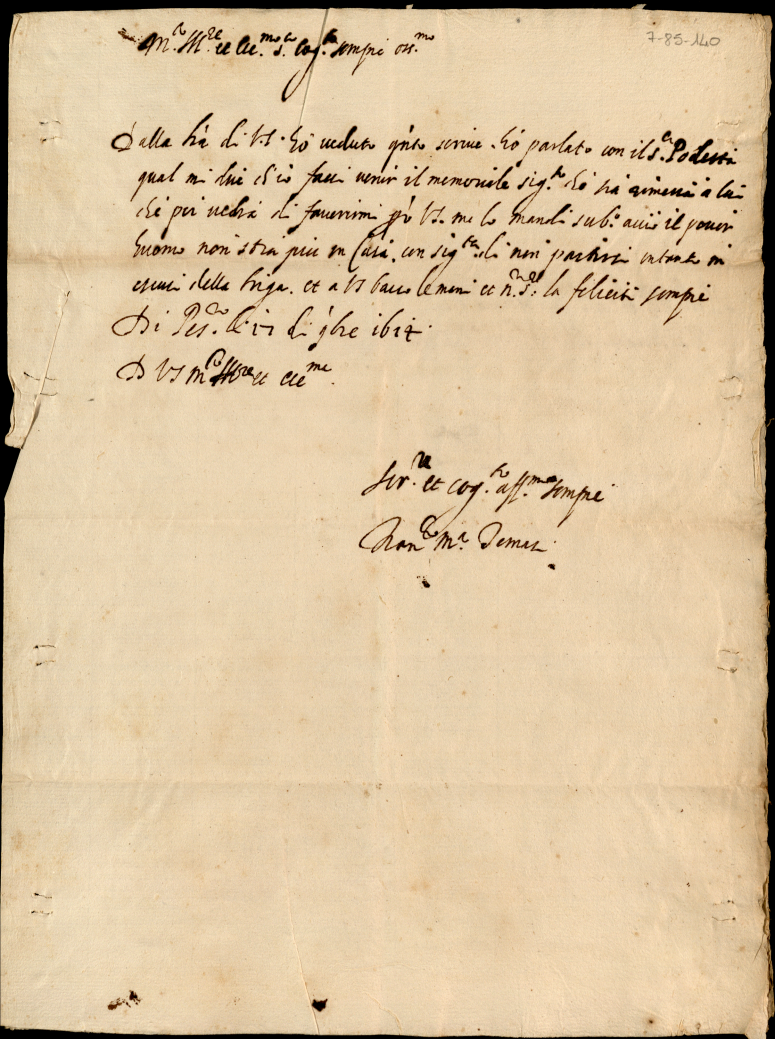 7-85-140
M.to Ill.re et Ecc.mo s.r Cog.to sempre oss.mo
Dalla l'ra di V.S. hò veduto q'nto scrive. hò parlato con il s.r Podestà
qual mi dice ch'io facci venir il memoriale sig.to che sia rimesso à lui
che poi vedrà di favorirmi p'rò V.S. me lo mandi sub.o acciò il pover
huomo non stia più in Casa, con sig.tà di non partirsi intanto mi
scusi della briga. et a VS bascio le mani et N.ro S.re la feliciti sempre
Di Pes.ro li di 9bre 1614
D VS M.to Ill.re et Ecc.ma
Ser.re et cog.to aff.mo sempre
Fran.co M.a